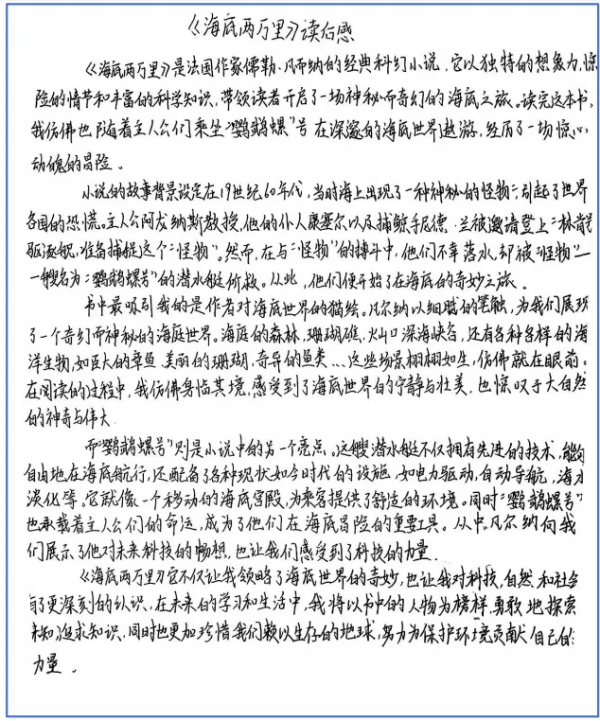 《海底两万里》读后感
《海底两万里》是法国作家儒勒·凡尔纳的经典科幻小说，它以独特的想象力，惊
险的情节和丰富的科学知识，带领读者开启了一场神秘而奇幻的海底之旅。读完这本书，
我仿佛也随着主人公们乘坐"鹦鹉螺"号在深邃的海底世界遨游，经历了一场惊心
动魄的冒险。
小说的故事背景设定在19世纪60年代，当时海上出现了一种神秘的怪物，引起了世界
各国的恐慌。主人公阿龙纳斯教授，他的仆人康塞尔以及捕鲸手尼德·兰被邀请登上"林肯号"
驱逐舰，准备捕捉这个"怪物"。然而，在与"怪物"的搏斗中，他们不幸落水，却被"怪物"—
一艘名为"鹦鹉螺号"的潜水艇所救。从此，他们便开始了在海底的奇妙之旅。
书中最吸引我的是作者对海底世界的描绘。凡尔纳以细腻的笔触，为我们展现
了一个奇幻而神秘的海底世界。海底的森林，珊瑚礁，火山口深海峡谷，还有各种各样的海
洋生物，如巨大的章鱼，美丽的珊瑚，奇异的鱼类...这些场景栩栩如生，仿佛就在眼前。
在阅读的过程中，我仿佛身临其境，感受到了海底世界的宁静与壮美，也惊叹于大自然
的神奇与伟大
而"鹦鹉螺号"则是小说中的另一个亮点。这艘潜水艇不仅拥有先进的技术，能够
自由地在海底航行，还配备了各种现状如今时代的设施，如电力驱动，自动导航，海水
淡化等。它就像一个移动的海底宫殿，为乘客提供了舒适的环境。同时"鹦鹉螺号"
也承载着主人公们的命运，成为了他们在海底冒险的重要工具。从中，凡尔纳向我
们展示了他对未来科技的畅想，也让我们感受到了科技的力量
《海底两万里》它不仅让我领略了海底世界的奇妙，也让我对科技，自然和社会
有了更深刻的认识，在未来的学习和生活中，我将以书中的人物为榜样，勇敢地探索
未知，追求知识，同时也更加珍惜我们赖以生存的地球，努力为保护环境贡献自己的
力量。